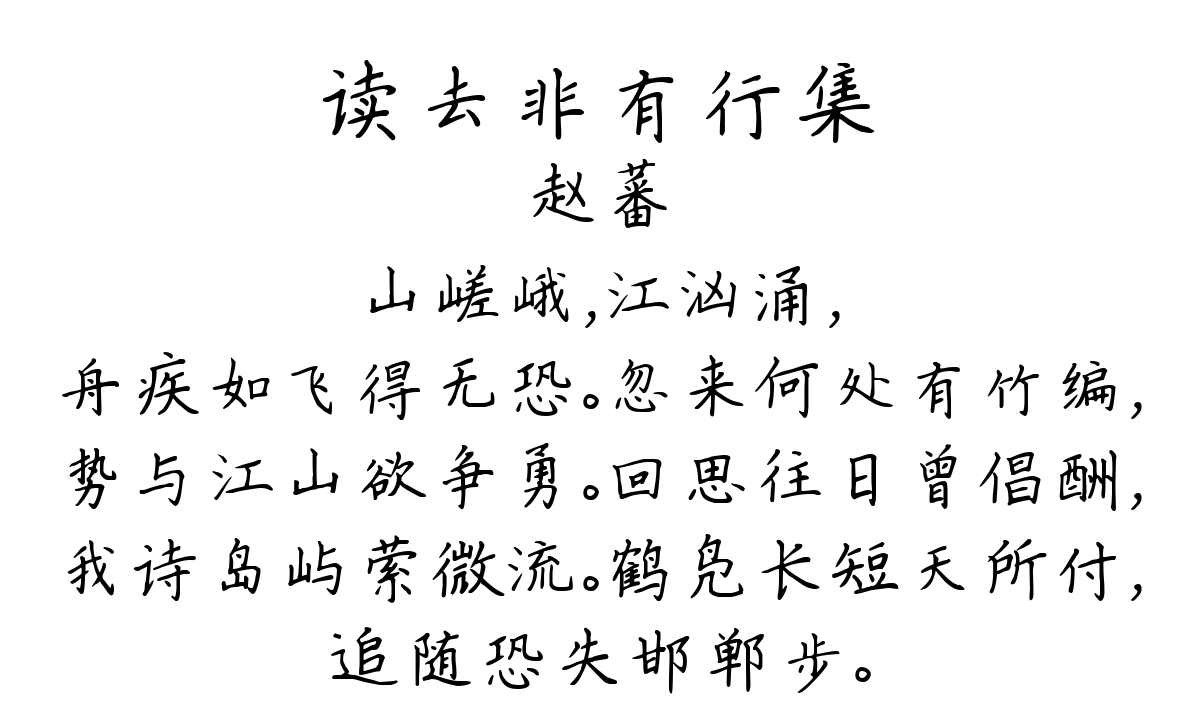 读去非有行集
赵蕃
山嵯峨,江汹涌,
舟疾如飞得无恐。忽来何处有竹编,
势与江山欲争勇。回思往日曾倡酬,
我诗岛屿萦微流。鹤凫长短天所付,
追随恐失邯郸步。